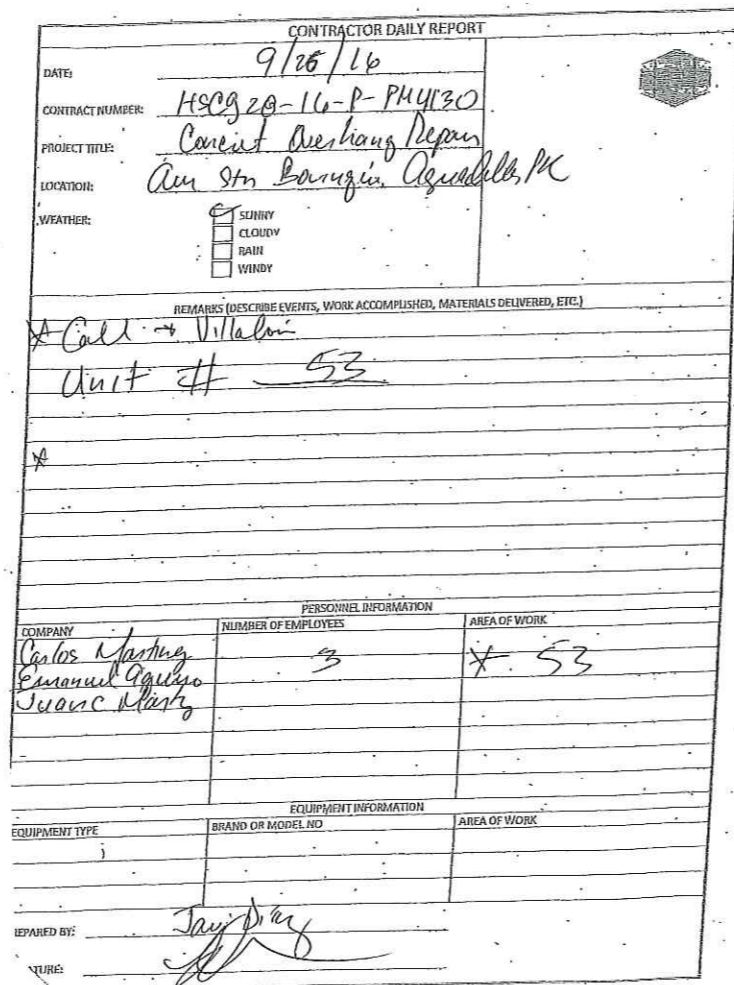 CONTRACTOR DAILY REPORT
DATE: 9/26/16
CONTRACT NUMBER: HSCG28-16-P-PMY130
PROJECT TITLE: Overhang Repair
LOCATION: Air Stn Borinquen, Aguadilla PR
WEATHER:
SUNNY
CLOUDY
RAIN
WINDY
REMARKS (DESCRIBE EVENTS, WORK ACCOMPLISHED, MATERIALS DELIVERED, ETC.)
* Call → Villalon
Unit # 53
*
PERSONNEL INFORMATION
COMPANY NUMBER OF EMPLOYEES AREA OF WORK
Carlos Martinez 3 * 53
Emanuel Aquino
Juan C Martz
EQUIPMENT INFORMATION
EQUIPMENT TYPE BRAND OR MODEL NO AREA OF WORK
EPARED BY: Diaz
TURE: